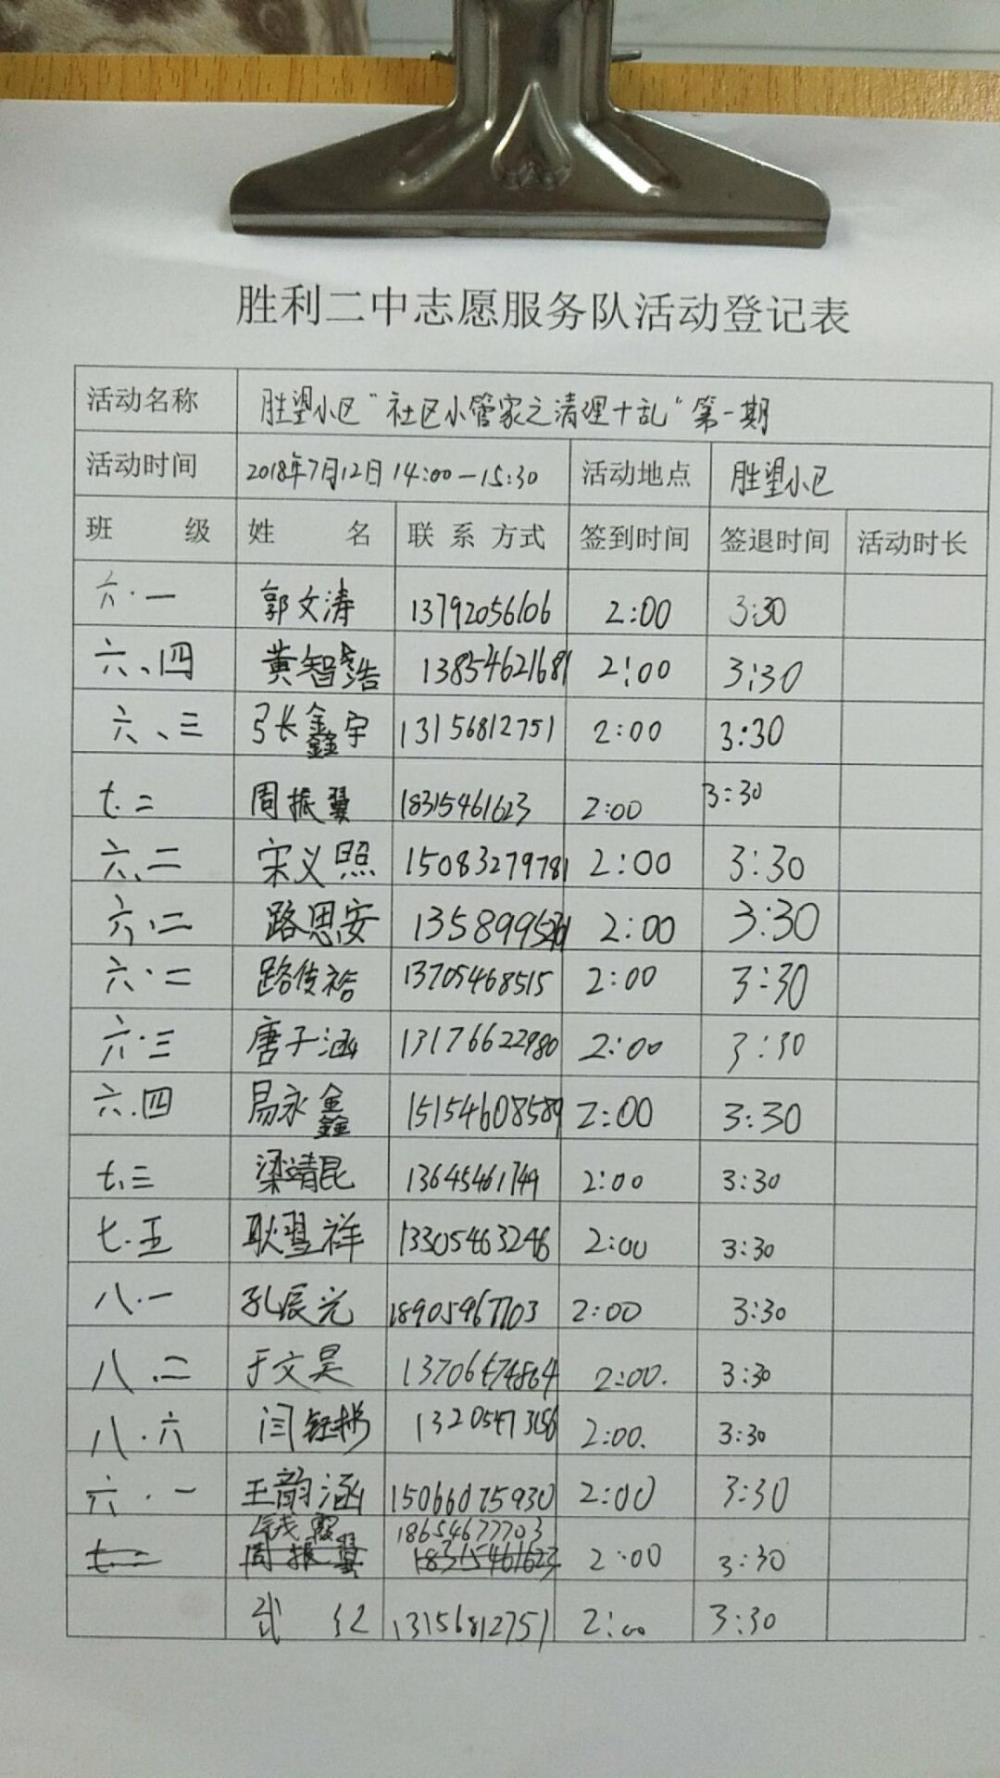 胜利二中志愿服务队活动登记表
活动名称 胜望小区“社区小管家之清理十乱”第一期
活动时间 2018年7月12日 14:00—15:30 活动地点 胜望小区
班 级 姓 名 联系方式 签到时间 签退时间 活动时长
六·一 郭文涛 13792056106 2:00 3:30
六、四 黄智浩 13854621681 2:00 3:30
六、三 张鑫宇 13156812751 2:00 3:30
七.二 周振翼 18315461623 2:00 3:30
六、二 宋义照 15083279781 2:00 3:30
六、二 路思安 2:00 3:30
六·二 路俊裕 13705468515 2:00 3:30
六·三 唐子涵 13176622980 2:00 3:30
六.四 易永鑫 15154608589 2:00 3:30
七、三 梁靖昆 13645461749 2:00 3:30
七.五 耿翌祥 13305463246 2:00 3:30
八·一 孔辰光 18905467703 2:00 3:30
八.二 于文昊 13706474864 2:00. 3:30
八·六 闫钰 2:00. 3:30
六·一 王韵涵 15066075930 2:00 3:30
钱霞 18654677703
七二 周振翼 18315461623 2:00 3:30
武红 13156812751 2:00 3:30